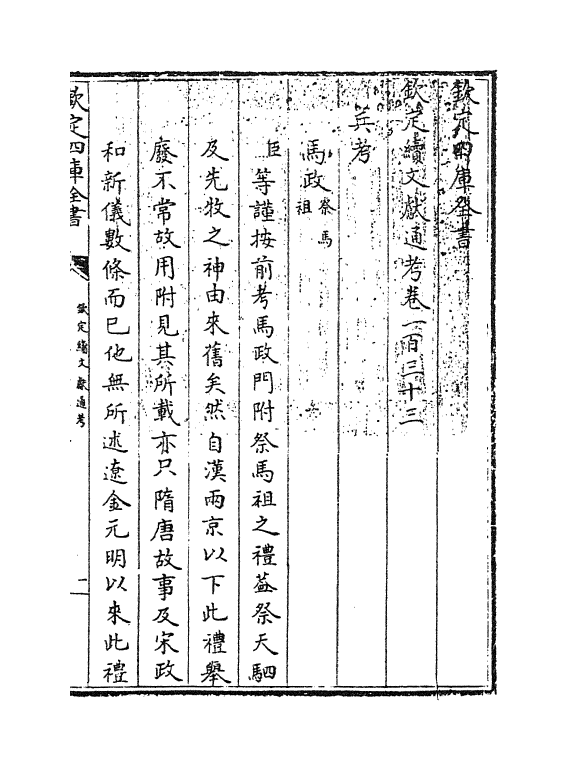 欽定四庫全書
欽定續文獻通考卷一百三十三
兵考
馬政祭馬祖
臣等謹按前考馬政門附祭馬祖之禮葢祭天駟
及先牧之神由來舊矣然自漢兩京以下此禮舉
廢不常故用附見其所載亦只隋唐故事及宋政
和新儀數條而已他無所述遼金元明以來此禮
欽定四庫全書
欽定續文獻通考
二